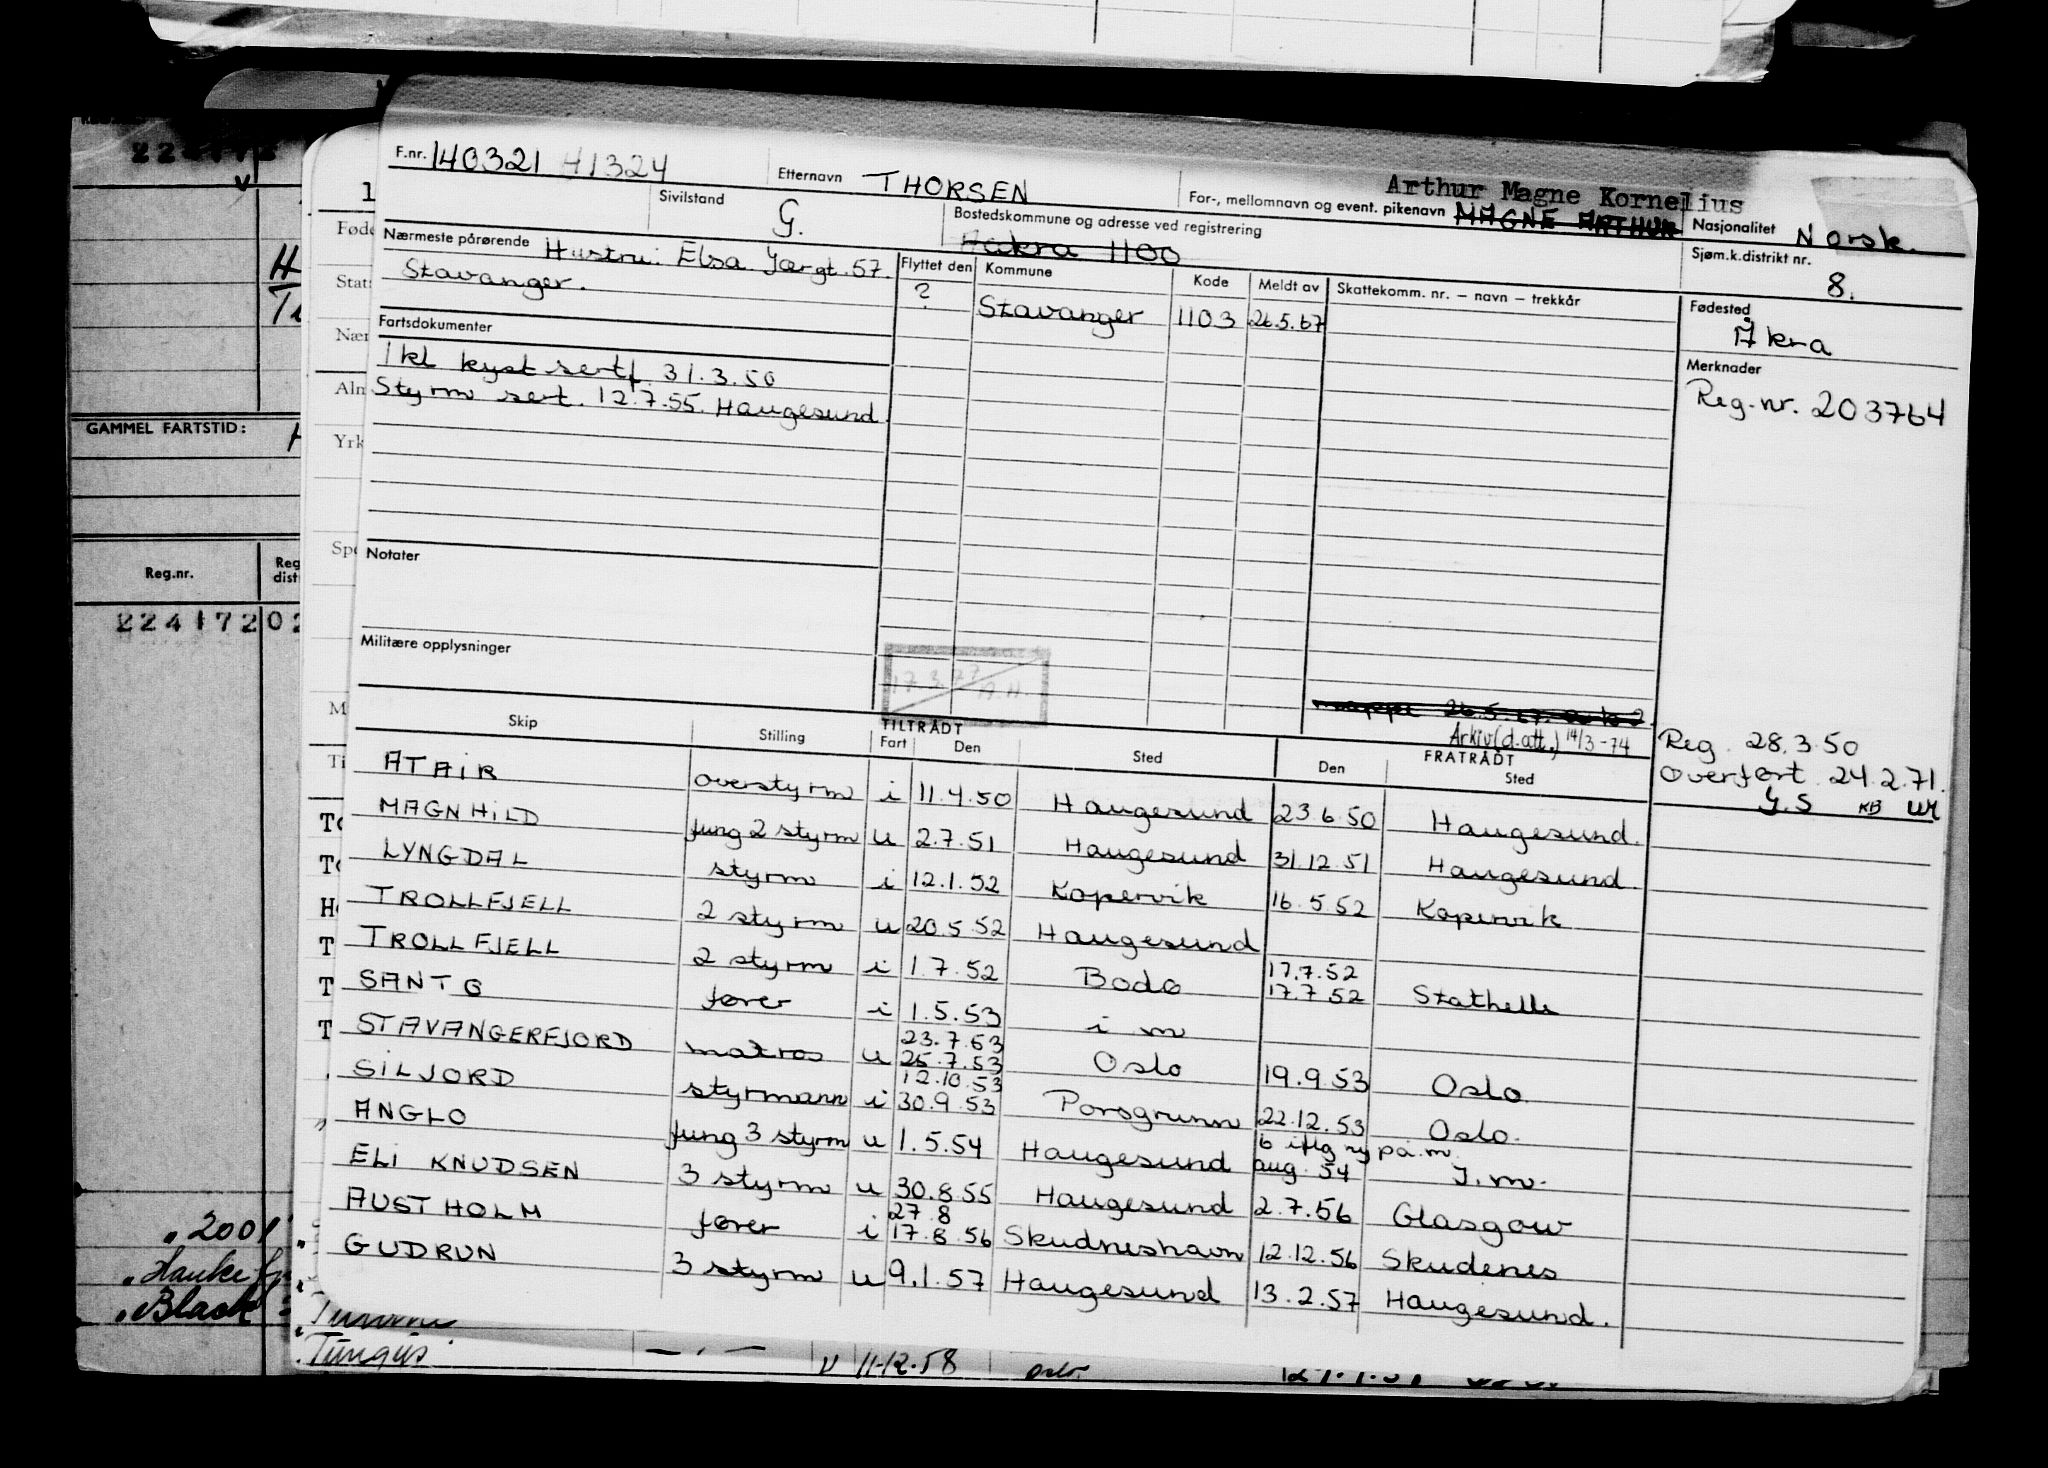 224172
F.nr. 140321 41324 Etternavn THORSEN For-, mellomnavn og event. pikenavn Arthur Magne Kornelius MAGNE ARTHUR
Sivilstand G. Bostedskommune og adresse ved registrering Åkra 1100 Nasjonalitet Norsk.
Nærmeste pårørende Hustru: Elsa Jærgt. 57.
Stavanger.
Flyttet den Kommune Kode Meldt av Skattekomm. nr. – navn – trekkår Sjøm.k.distrikt nr. 8.
? Stavanger 1103 26.5.67
Fødested Åkra
Fartsdokumenter
1 kl kyst sertf. 31.3.50
Styrm sert. 12.7.55. Haugesund.
Merknader
Reg.nr. 203764
GAMMEL FARTSTID:
Notater
Reg.nr.
224172
Militære opplysninger
17.3.77 A.H.
26.5.67
Arkiv (d.att.) 14/3-74
Reg. 28.3.50
Overført 24.2.71.
G.S KB UR
Skip Stilling TILTRÅDT Fart Den Sted FRATRÅDT Den Sted
ATAIR overstyrm i 11.4.50 Haugesund 23.6.50 Haugesund.
MAGNHILD fung 2 styrm u 2.7.51 Haugesund 31.12.51 Haugesund.
LYNGDAL styrm i 12.1.52 Kopervik 16.5.52 Kopervik
TROLLFJELL 2 styrm u 20.5.52 Haugesund
TROLLFJELL 2 styrm i 1.7.52 Bodø 17.7.52 17.7.52 Stathelle
SANT G fører i 1.5.53 i m
STAVANGERFJORD matros u 23.7.53 25.7.53 Oslo 19.9.53 Oslo.
SILJORD styrmann i 12.10.53 30.9.53 Porsgrunn 22.12.53 Oslo.
ANGLO fung 3 styrm u 1.5.54 Haugesund 6 iflg ny på.m. aug. 54 I.m.
ELI KNUDSEN 3 styrm u 30.8.55 Haugesund 2.7.56 Glasgow
AUSTHOLM fører i 27.8 17.8.56 Skudneshavn 12.12.56 Skudenes
GUDRUN 3 styrm u 9.1.57 Haugesund 13.2.57 Haugesund.
Black
Tungus — . — u 11-12.58